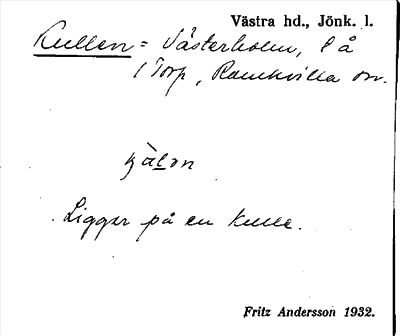 Västra hd., Jönk. l.
Kullen = Västerholm, l å
1 Torp, Ramkvilla sn.
Ligger på en kulle.
Fritz Andersson 1932.